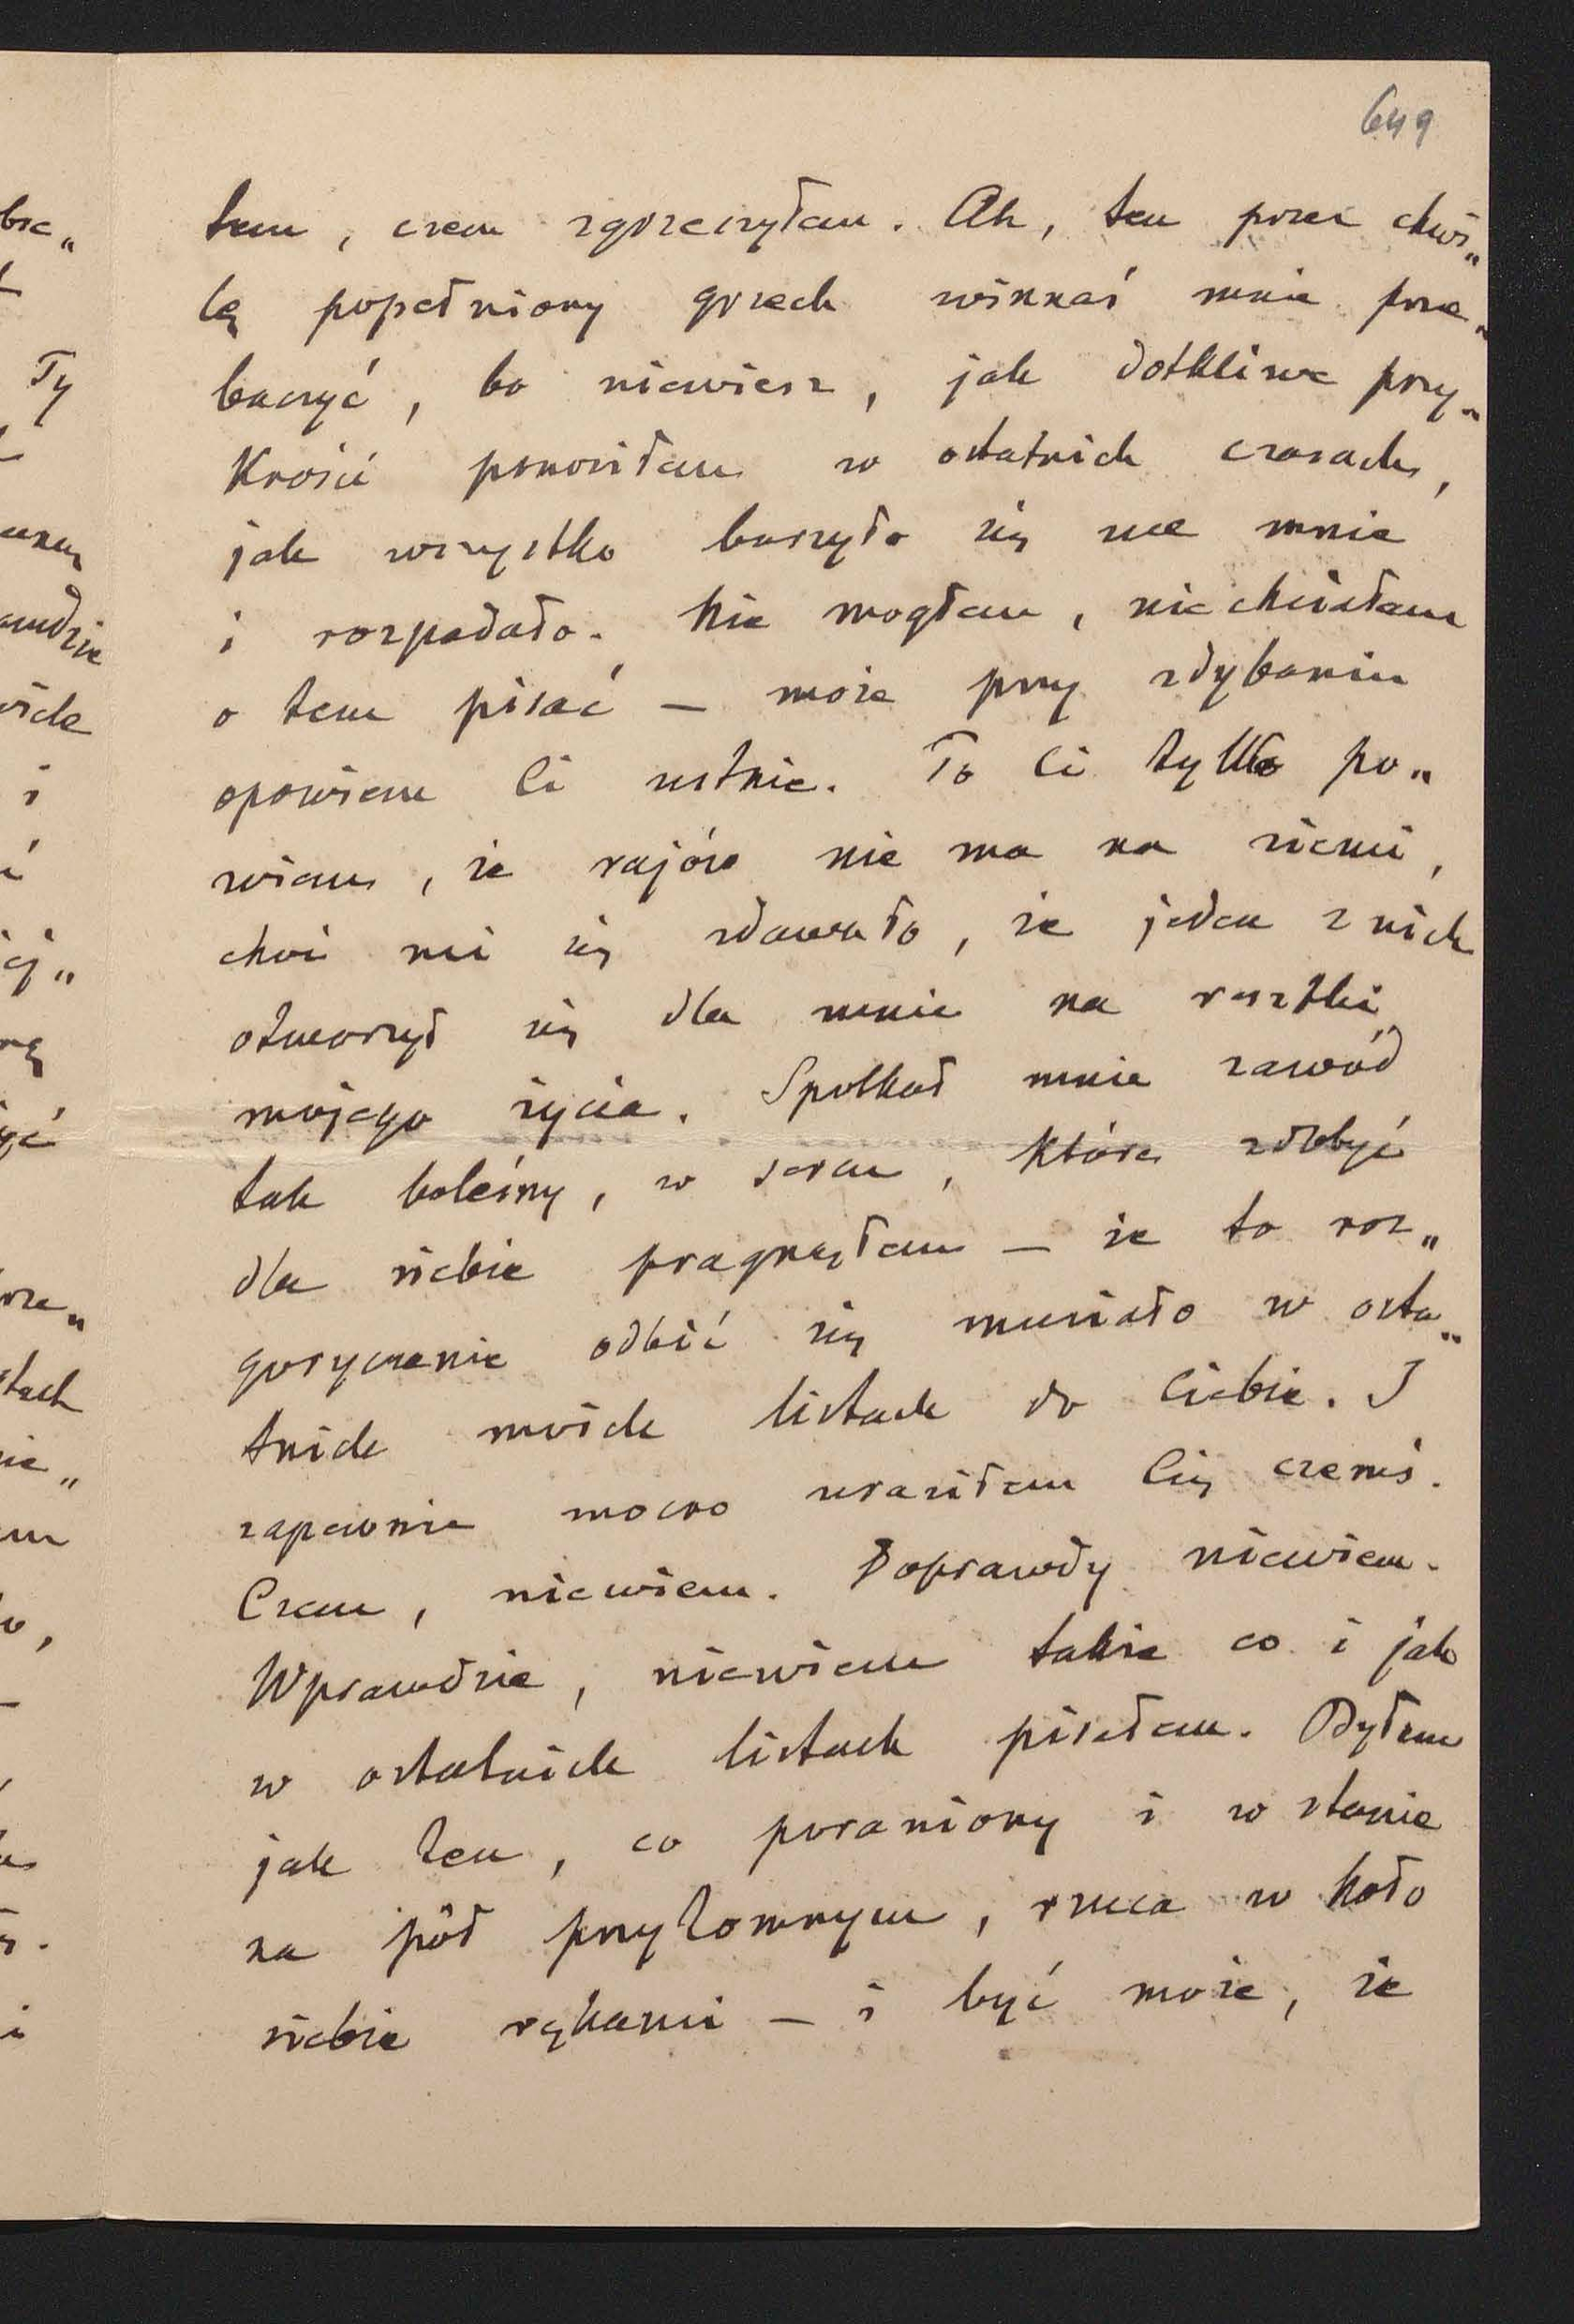 649
tem, czem zgrzeszyłam. Ah, ten przez chwi„
lę popełniony grzech winnaś mnie prze„
baczyć, bo niewiesz, jak dotkliwe przy„
krości ponosiłam w ostatnich czasach,
jak wszystko burzyło się we mnie
i rozpadało. Nie mogłam, nie chciałam
o tem pisać — może przy zdybaniu
opowiem Ci ustnie. To Ci tylko po„
wiem, że rajów nie ma na ziemi,
choć mi się zdawało, że jeden z nich
otworzył się dla mnie na resztki
mojego życia. Spotkał mnie zawód
tak boleśny, w sercu, które zdobyć
dla siebie pragnęłam — że to roz„
goryczenie odbić się musiało w osta„
tnich moich listach do Ciebie. I
zapewnie mocno uraziłam Cię czemś.
Czem, niewiem. Doprawdy niewiem.
Wprawdzie, niewiem także co i jak
w ostatnich listach pisałam. Byłam
jak ten, co poraniony i w stanie
na pół przytomnym, rzuca w koło
siebie rękami — i być może, że
bie„
Ty
i
ej„
rę
yć
rze„
stach
nie„